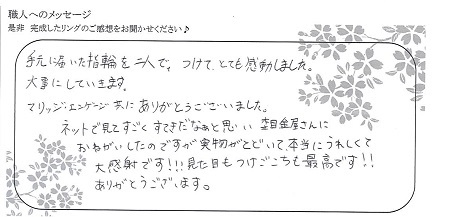 職人へのメッセージ
是非 完成したリングのご感想をお聞かせください♪
手元に届いた指輪を二人で、つけて、とても感動しました。
大事にしていきます。
マリッジ・エンゲージ共にありがとうございました。
ネットで見てすごくすてきだなぁと思い 杢目金屋さんに
おねがいしたのですが実物がとどいて本当にうれしくて
大感謝です!!!見た目もつけごこちも最高です!!
ありがとうございます。